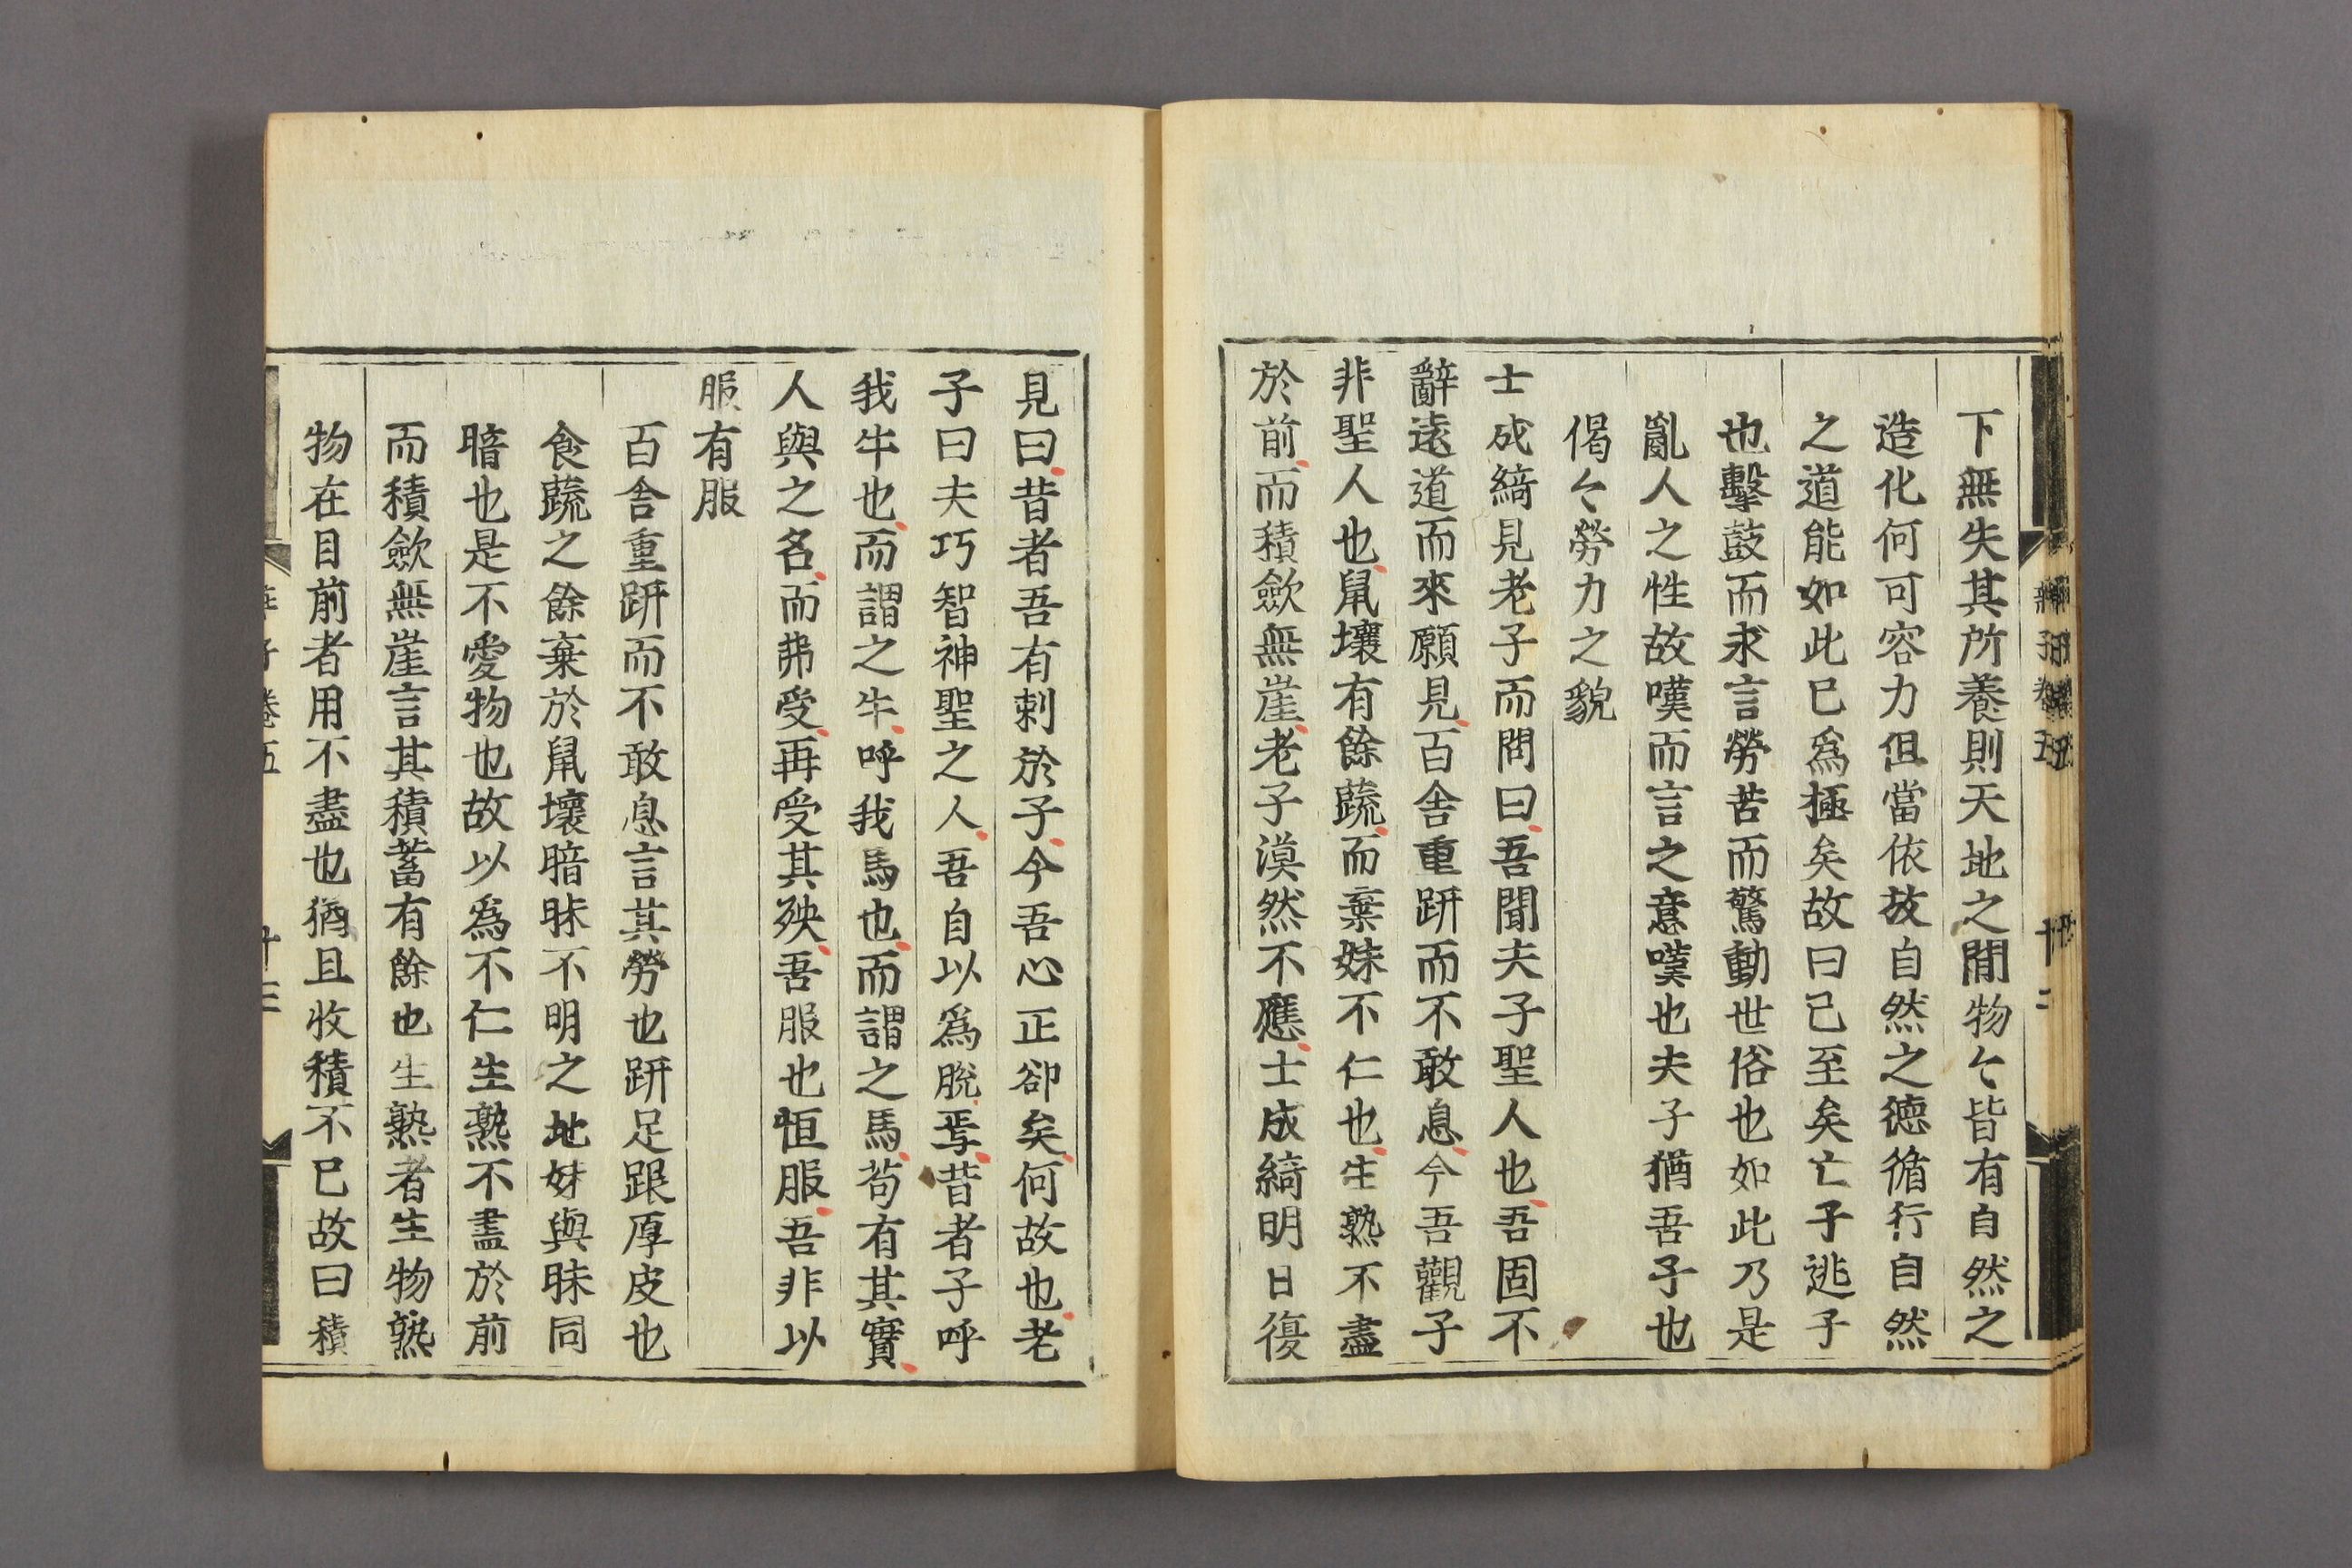 下無失其所養則天地之間物〻皆有自然之
造化何可容力但當依放自然之德循行自然
之道能如此已爲極矣故曰已至矣亡子逃子
也擊鼓而求言勞苦而驚動世俗也如此乃是
亂人之性故嘆而言之意嘆也夫子猶吾子也
偈〻勞力之貌
士成綺見老子而問曰吾聞夫子聖人也吾固不
辭遠道而來願見百舍重趼而不敢息今吾觀子
非聖人也鼠壤有餘蔬而棄妹不仁也生熟不盡
於前而積歛無崖老子漠然不應士成綺明日復
見曰昔者吾有刺於子今吾心正卻矣何故也老
子曰夫巧智神聖之人吾自以爲脫焉昔者子呼
我牛也而謂之牛呼我馬也而謂之馬茍有其實
人與之名而弗受再受其殃吾服也恒服吾非以
服有服
百舍重趼而不敢息言其勞也趼足跟厚皮也
食蔬之餘棄於鼠壤暗昧不明之地妹與昧同
暗也是不愛物也故以爲不仁生熟不盡於前
而積歛無崖言其積蓄有餘也生熟者生物熟
物在目前者用不盡也猶且收積不已故曰積
子卷五
十三